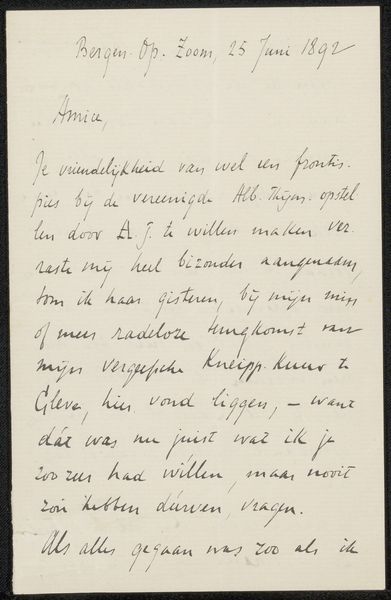 Bergen-Op-Zoom, 25 Juni 1892
Amice,
Je vriendelijkheid van wel een frontis-
pies bij de vereenigde Alb. Thijm-opstel
len door A. J. te willen maken ver-
raste mij heel bizonder aangenaam,
tom ik haar gisteren, bij mijn min
of meer radeloze terugkomst van
mijn vergeefsche Kneipp-Kuur te
Cleve, hier vond liggen, – want
dát was nu juist wat ik je
zoo zeer had willen, maar nooit
zou hebben durven, vragen.
Als alles gegaan was zoo als ik